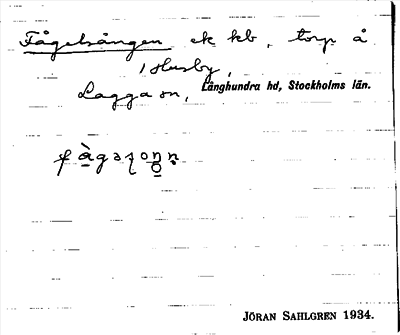 Fågelsången ek kb, torp å
/ Husby,
Lagga sn, Långhundra hd, Stockholms län.
JÖRAN SAHLGREN 1934.